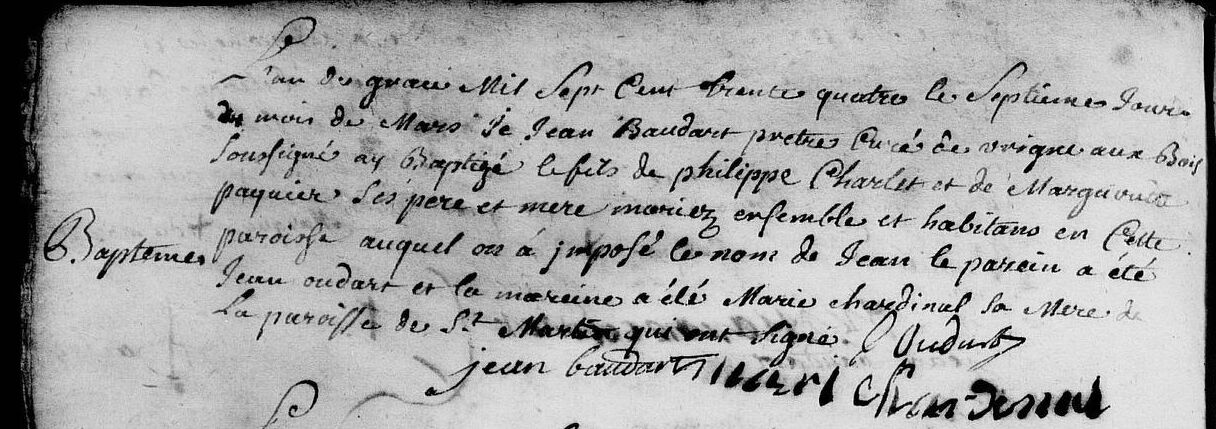 L'an de grace Mil Sept Cent trente quatre le Septieme Jour
du mois de Mars Je Jean Baudart pretre Curé de vrigne aux Bois
soussigné ay Baptizé le fils de philippe Charlet et de Marguerite
paquier ses pere et mere mariez ensemble et habitans en Cette
Baptême
paroisse auquel on á jmposé le nom de Jean le parein a été
Jean oudart et la mareine a élé Marie chardinal sa Mere de
La paroisse de St Martin qui ont signé J Oudart
jean baudart Chardenal